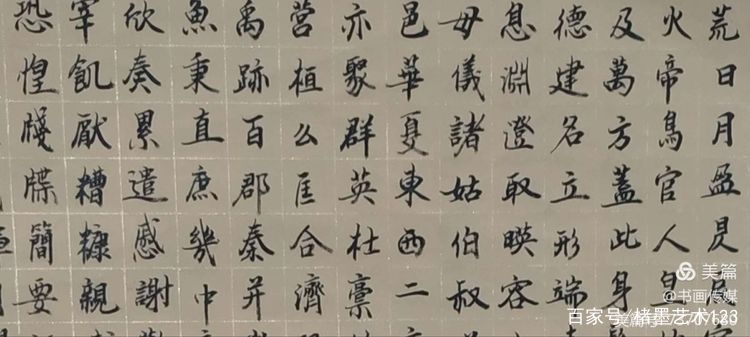 荒日月盈昃辰
火帝鳥官人皇
及萬方蓋此身
德建名立形端
息淵澄取暎容
母儀諸姑伯叔
邑華夏東西二
亦聚群英杜稾
營桓公匡合濟
禹跡百郡秦并
魚秉直庶幾中
欣奏累遣慼謝
宰飢厭糟糠親
恐惶牋牒簡要
美篇
@书画传媒
百家号/楮墨艺术123